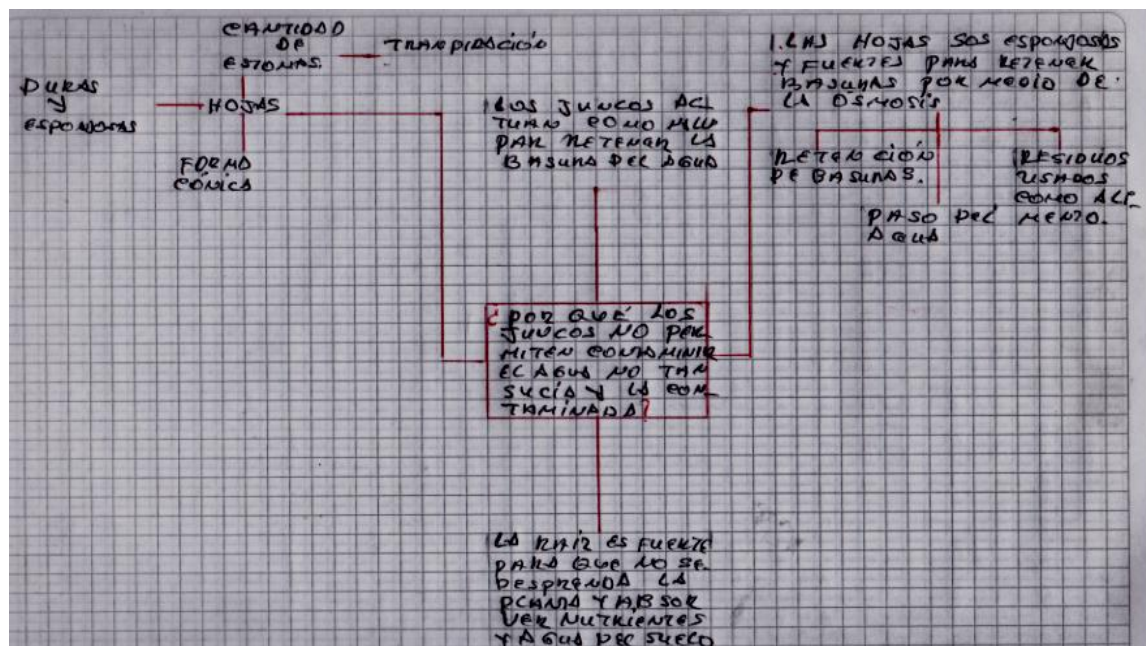 CANTIDAD
DE
ESTOMAS.
TRANPIRACIÓN
DURAS
Y
ESPONJOSAS
HOJAS
FORMA
CÓNICA
LOS JUNCOS AC
TUAN COMO
PAR RETENER LA
BASURA DEL AGUA
1. LAS HOJAS SOS ESPONJOSAS
Y FUERTES PARA RETENER
BASURAS POR MEDIO DE
LA OSMOSÍS
RETEN CIÓN
DE BASURAS.
PASO DEL
AGUA
RESIDUOS
USADOS
COMO ALI_
MENTO.
¿POR QUÉ LOS
JUNCOS NO PER
MITEN CONTAMINIR
EL AGUA NO TAN
SUCÍA Y LA CON_
TAMINADA?
LA RAÍZ ES FUERTE
PARA QUE NO SE
DESPRENDA LA
PLANTA Y ABSOR
VER NUTRIENTES
Y AGUA DEL SUELO